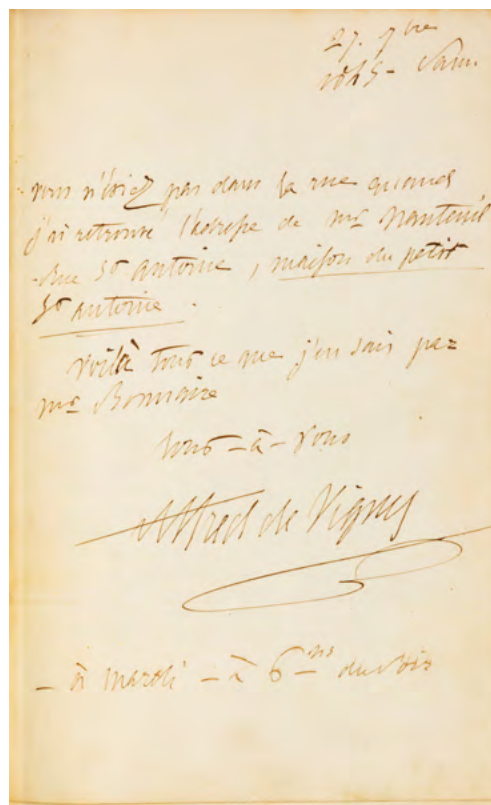 27. 7bre
1845 - Sam.
vous n'étiez pas dans la rue quand
j'ai retrouvé l'adresse de mr Nanteuil
Rue St antoine, maison du petit
St antoine.
voilà tout ce que j'en sais par
mr Bonnaire
tout-à-vous
Alfred de Vigny
- à mardi - à 6 - hs du soir